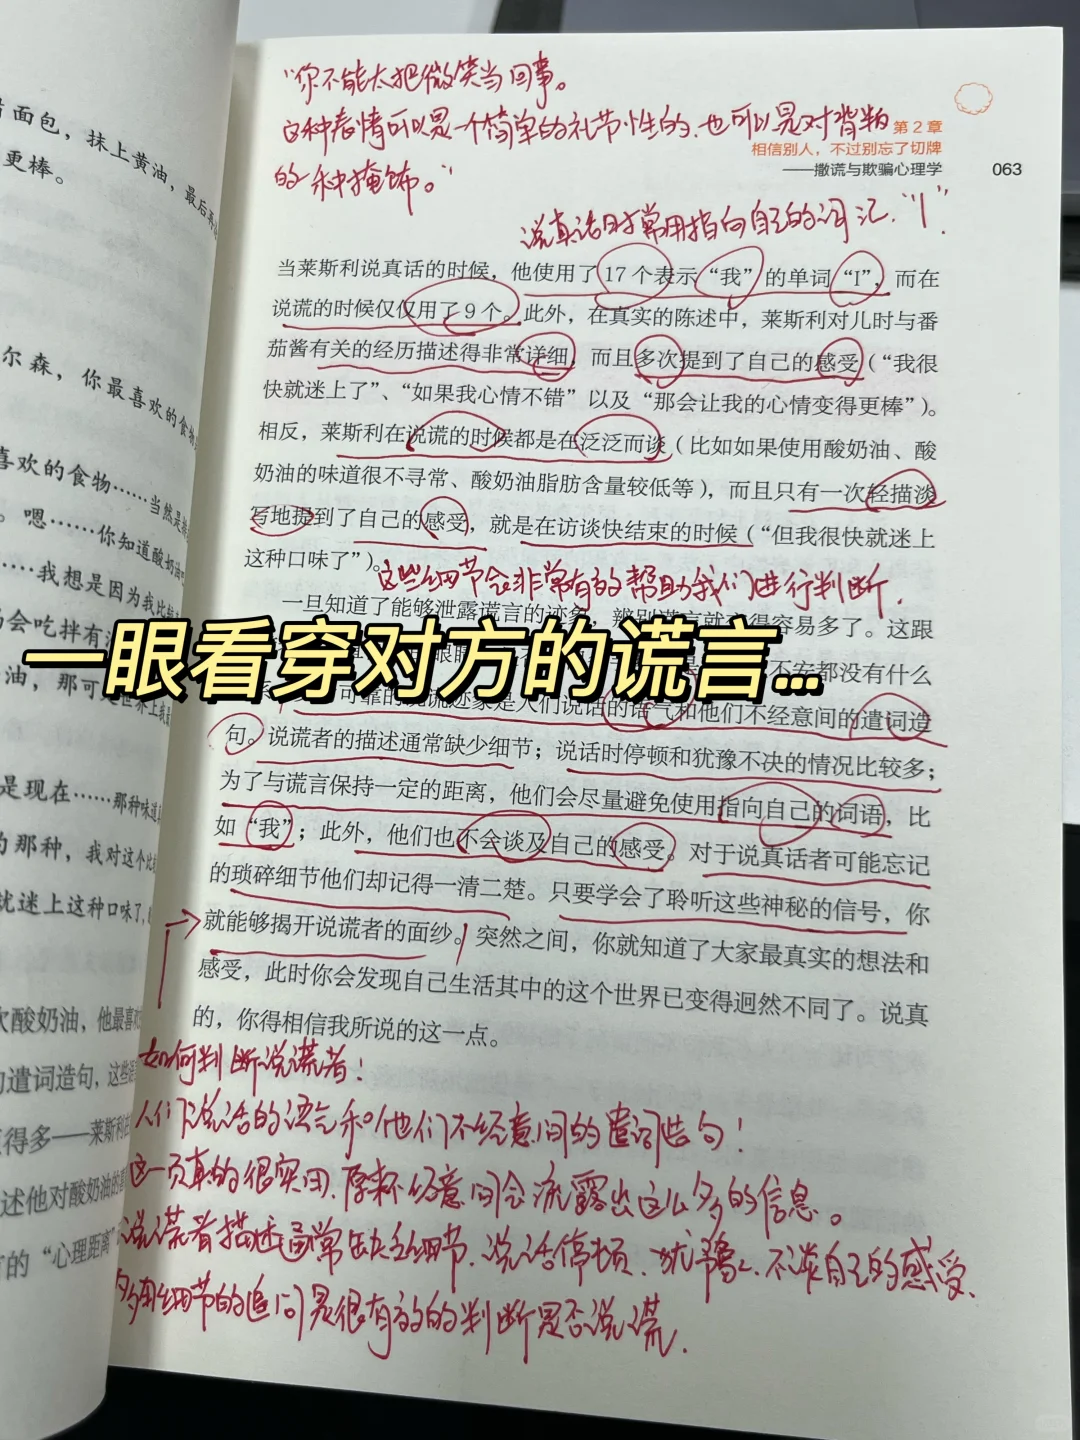 "你不能太把微笑当回事。
这种表情可以是一个简单的礼节性的,也可以是对背叛
的一种掩饰。"
第2章
相信别人，不过别忘了切牌
——撒谎与欺骗心理学
063
说真话时常用指向自己的词汇."I".
当莱斯利说真话的时候，他使用了17个表示“我”的单词“I”，而在
说谎的时候仅仅用了9个。此外，在真实的陈述中，莱斯利对儿时与番
茄酱有关的经历描述得非常详细，而且多次提到了自己的感受（“我很
快就迷上了”、“如果我心情不错”以及“那会让我的心情变得更棒”）。
相反，莱斯利在说谎的时候都是在泛泛而谈（比如如果使用酸奶油、酸
奶油的味道很不寻常、酸奶油脂肪含量较低等），而且只有一次轻描淡
写地提到了自己的感受，就是在访谈快结束的时候（“但我很快就迷上
这种口味了”）。
这些细节会非常有效的帮助我们进行判断.
一旦知道了能够泄露谎言的迹象，辨别谎言就变得容易多了。这跟
一眼看穿对方的谎言...
不安都没有什么
可靠的说谎迹象是人们说话的语气和他们不经意间的遣词造
句。说谎者的描述通常缺少细节；说话时停顿和犹豫不决的情况比较多；
为了与谎言保持一定的距离，他们会尽量避免使用指向自己的词语，比
如“我”；此外，他们也不会谈及自己的感受。对于说真话者可能忘记
的琐碎细节他们却记得一清二楚。只要学会了聆听这些神秘的信号，你
就能够揭开说谎者的面纱。突然之间，你就知道了大家最真实的想法和
感受，此时你会发现自己生活其中的这个世界已变得迥然不同了。说真
的，你得相信我所说的这一点。
如何判断说谎者!
人们说话的语气和他们不经意间的遣词造句!
这一页真的很实用.原来不经意间会流露出这么多的信息。
说谎者描述通常缺乏细节.说话停顿、犹豫、不谈自己的感受.
多用细节的追问是很有效的判断是否说谎.
面包，抹上黄油，最后再
更棒。
尔森，你最喜欢的食物
喜欢的食物……当然是
。嗯……你知道酸奶油
……我想是因为我比
会吃拌有
油，那可
是现在……那种味道
的那种，我对这个比
就迷上这种口味了，
欢酸奶油，他最喜欢
遣词造句，这些
得多——莱斯利在
述他对酸奶油的
的“心理距离”